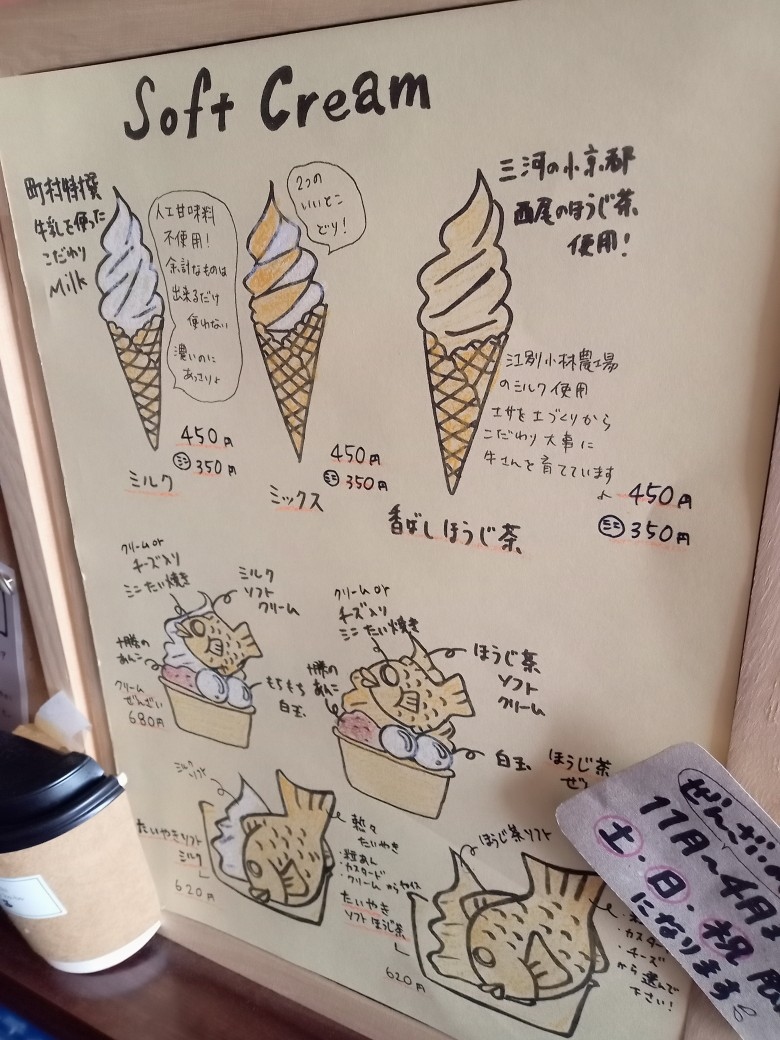 Soft Cream
町村特撰
牛乳を使った
こだわり
Milk
人工甘味料
不使用!
余計なものは
出来るだけ
使わない
濃いのに
あっさり♪
450円
ミニ 350円
ミルク
2つの
いいとこ
どり!
450円
ミニ 350円
ミックス
三河の小京都
西尾のほうじ茶
使用!
江別小林農場
のミルク使用
土づくりから
こだわり 大事に
牛さんを育てています♪
450円
ミニ 350円
香ばしほうじ茶
クリームor
チーズ入り
ミニたい焼き
ミルク
ソフト
クリーム
十勝の
あんこ
もちもち
白玉
クリーム
ぜんざい
680円
クリームor
チーズ入り
ミニたい焼き
ほうじ茶
ソフト
クリーム
十勝の
あんこ
白玉
ほうじ茶
ぜ
ミルクソフト
たいやきソフト
ミルク
620円
熱々
たいやき
・粒あん
・カスタード
・クリームチーズ
たいやき
ソフトほうじ茶
620円
ほうじ茶ソフト
・カスタ
・チーズ
から選んで
下さい!
ぜんざい
11月~4月
土・日・祝
になります